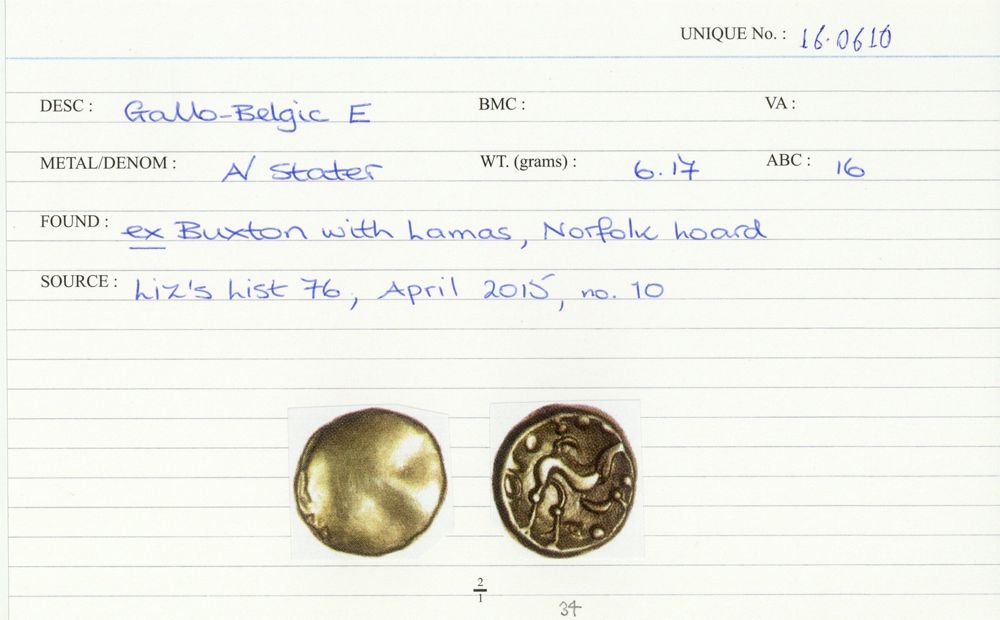 UNIQUE No. : 16.0610
DESC : Gallo-Belgic E BMC : VA :
METAL/DENOM : A/ Stater WT. (grams) : 6.17 ABC : 16
FOUND : ex Buxton with Lamas, Norfolk hoard
SOURCE : Liz's List 76, April 2015, no. 10
2
1
34